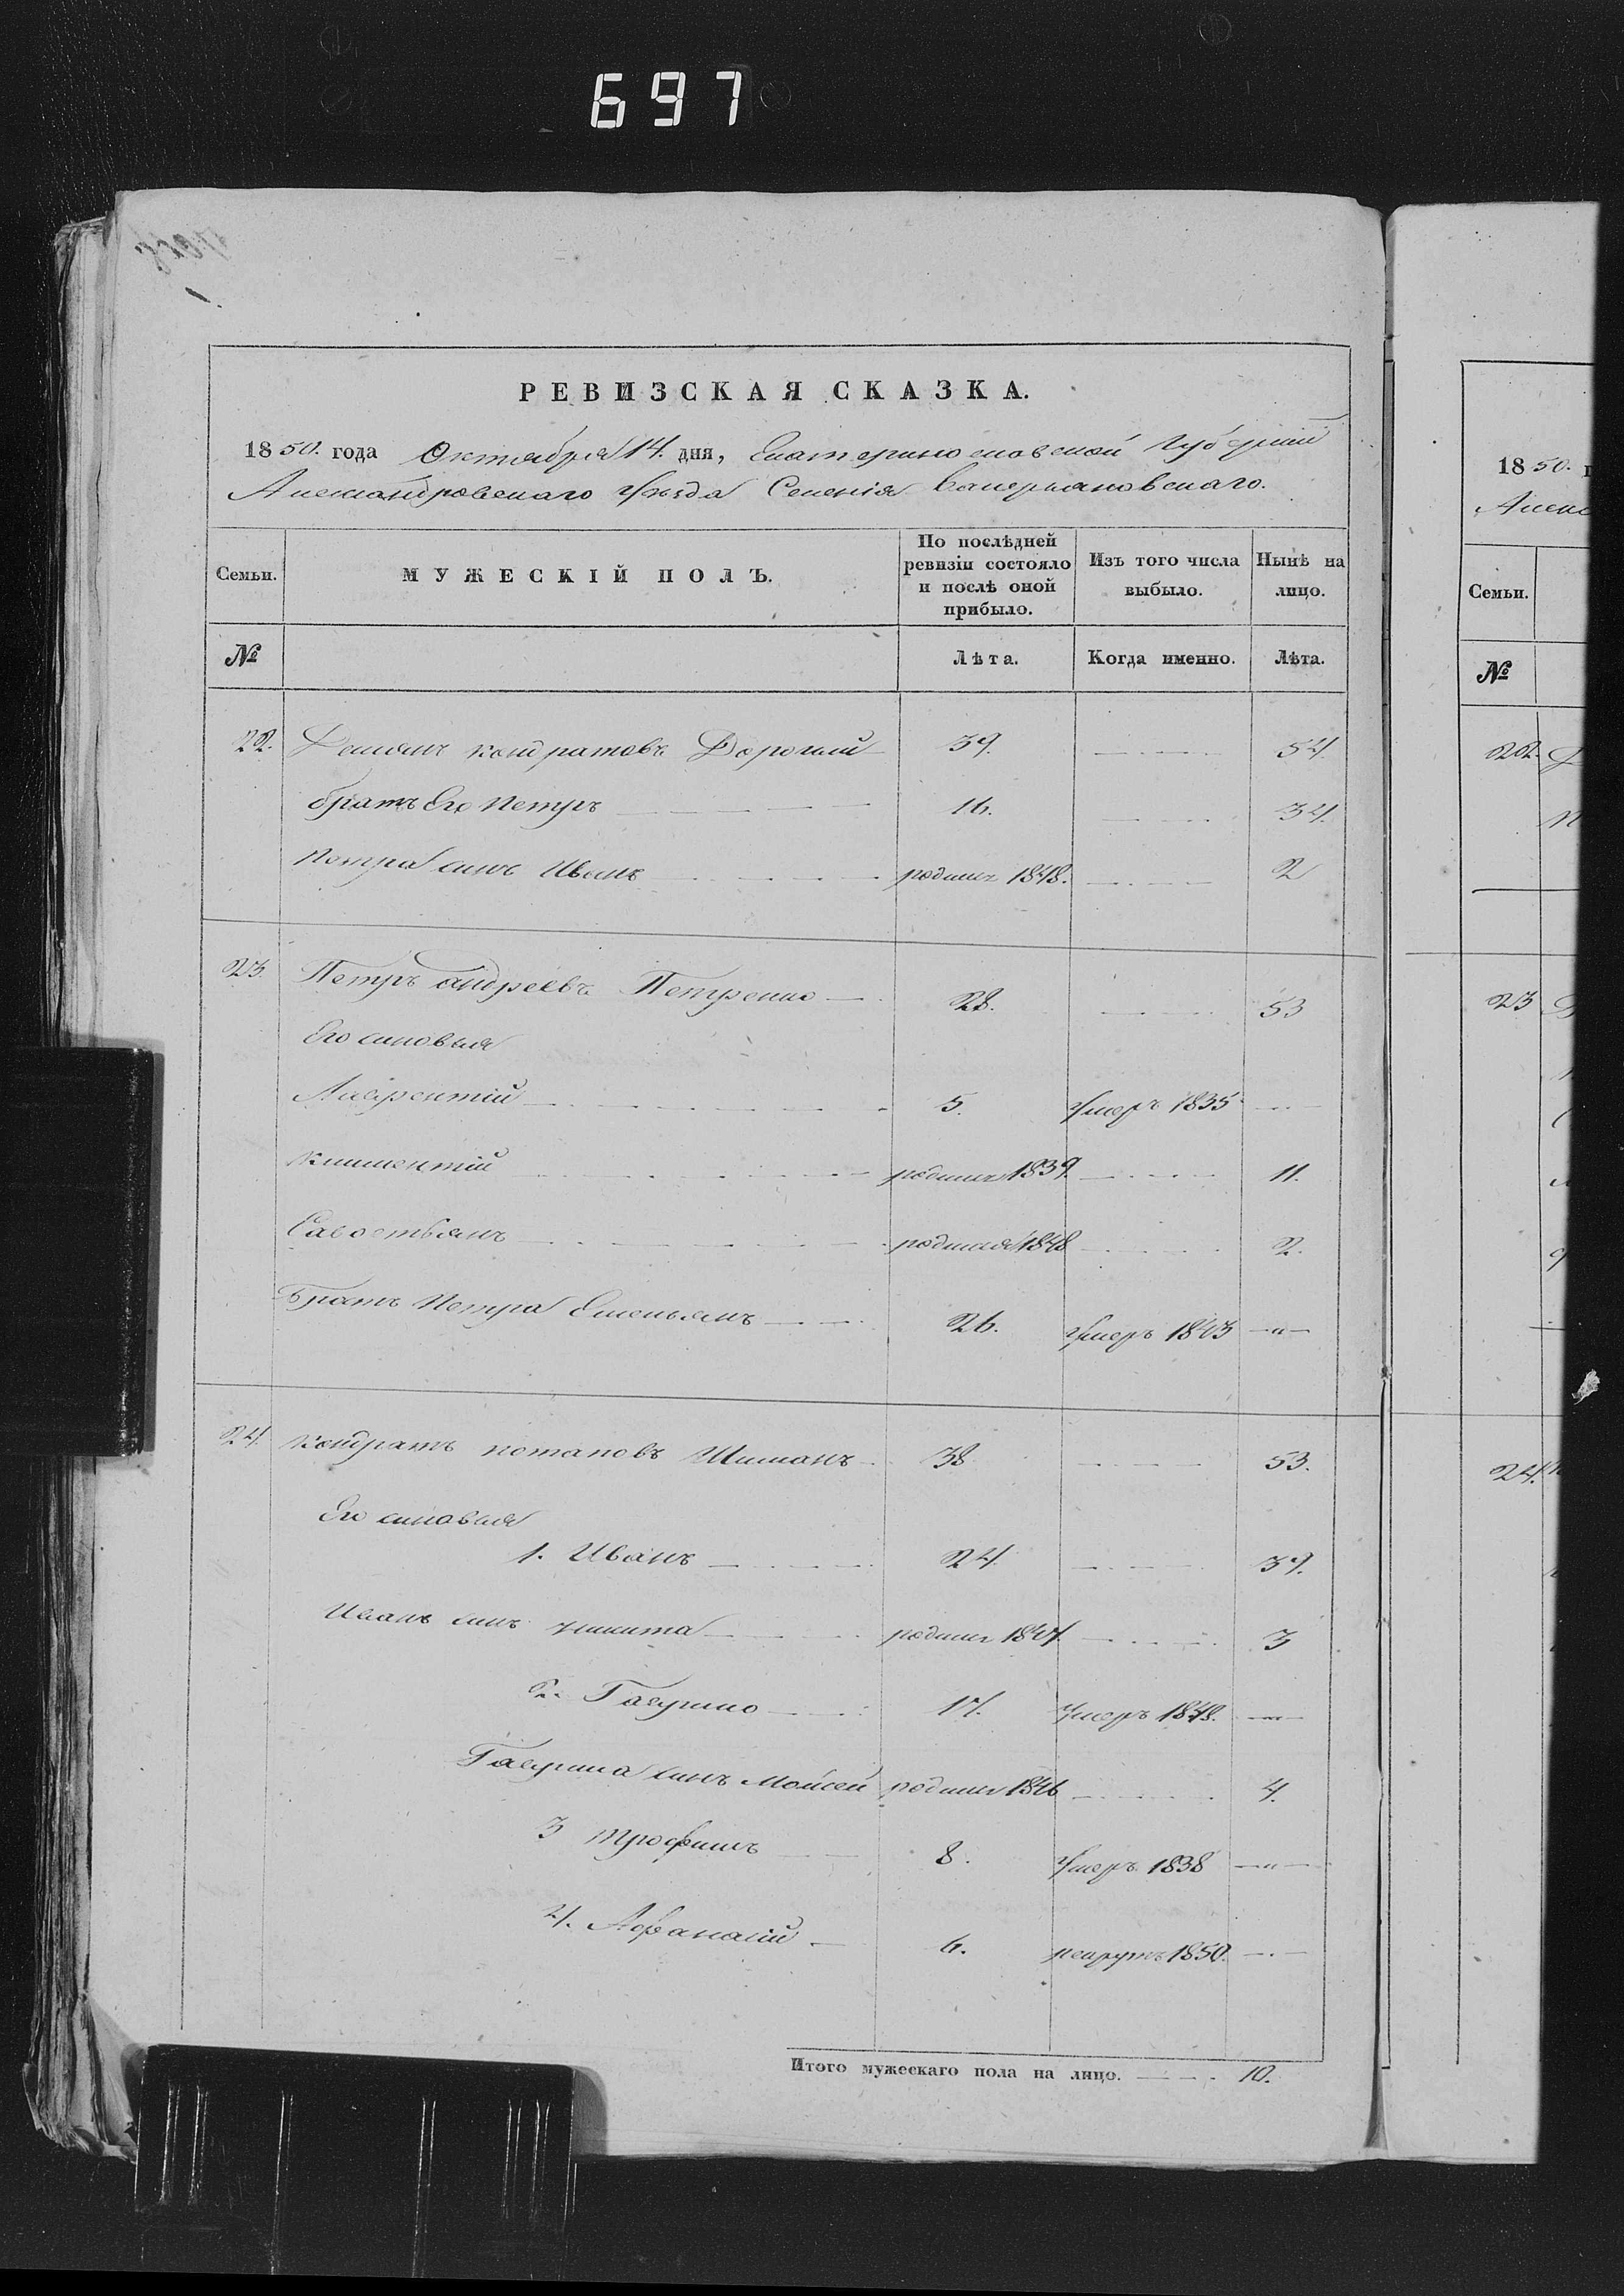 697
РЕВИЗСКАЯ СКАЗКА.
1850. года Октября 14. дня, Екатеринославской Губерніи
Александровскаго Уѣзда Селенія Валерьяновскаго.
Семьи.
МУЖЕСКІЙ ПОЛЪ.
По послѣдней ревизіи состояло и послѣ оной прибыло.
Изъ того числа выбыло.
Нынѣ на лицо.
№
Лѣта.
Когда именно.
Лѣта.
22. Кондратовъ 39. 54.
братъ Его Петръ 16. 34.
Петра синъ Иванъ родился 1848. 2
23. Петръ Андреевъ Петренко 28. 53
Его синовья
Лаврентій 5. Умеръ 1835
Климентій родился 1839. 11.
Савостьянъ родился 1848 2.
Братъ Петра Емельянъ 26. Умеръ 1843 —"—
24. Кондратъ Потаповъ Шиманъ 38 53.
Его синовья
1. Иванъ 24. 39.
Иванъ синъ Никита родился 1847. 3
2. Гаврило 17. Умеръ 1848.
Гаврила синъ Мойсей родился 1846 4.
3 Трофимъ 8. Умеръ 1838 —"—
4. Афанасій 6. рекрутъ 1850.
Итого мужескаго пола на лицо. 10.
1850. г
Алекс
Семьи.
№
22.
23
24.